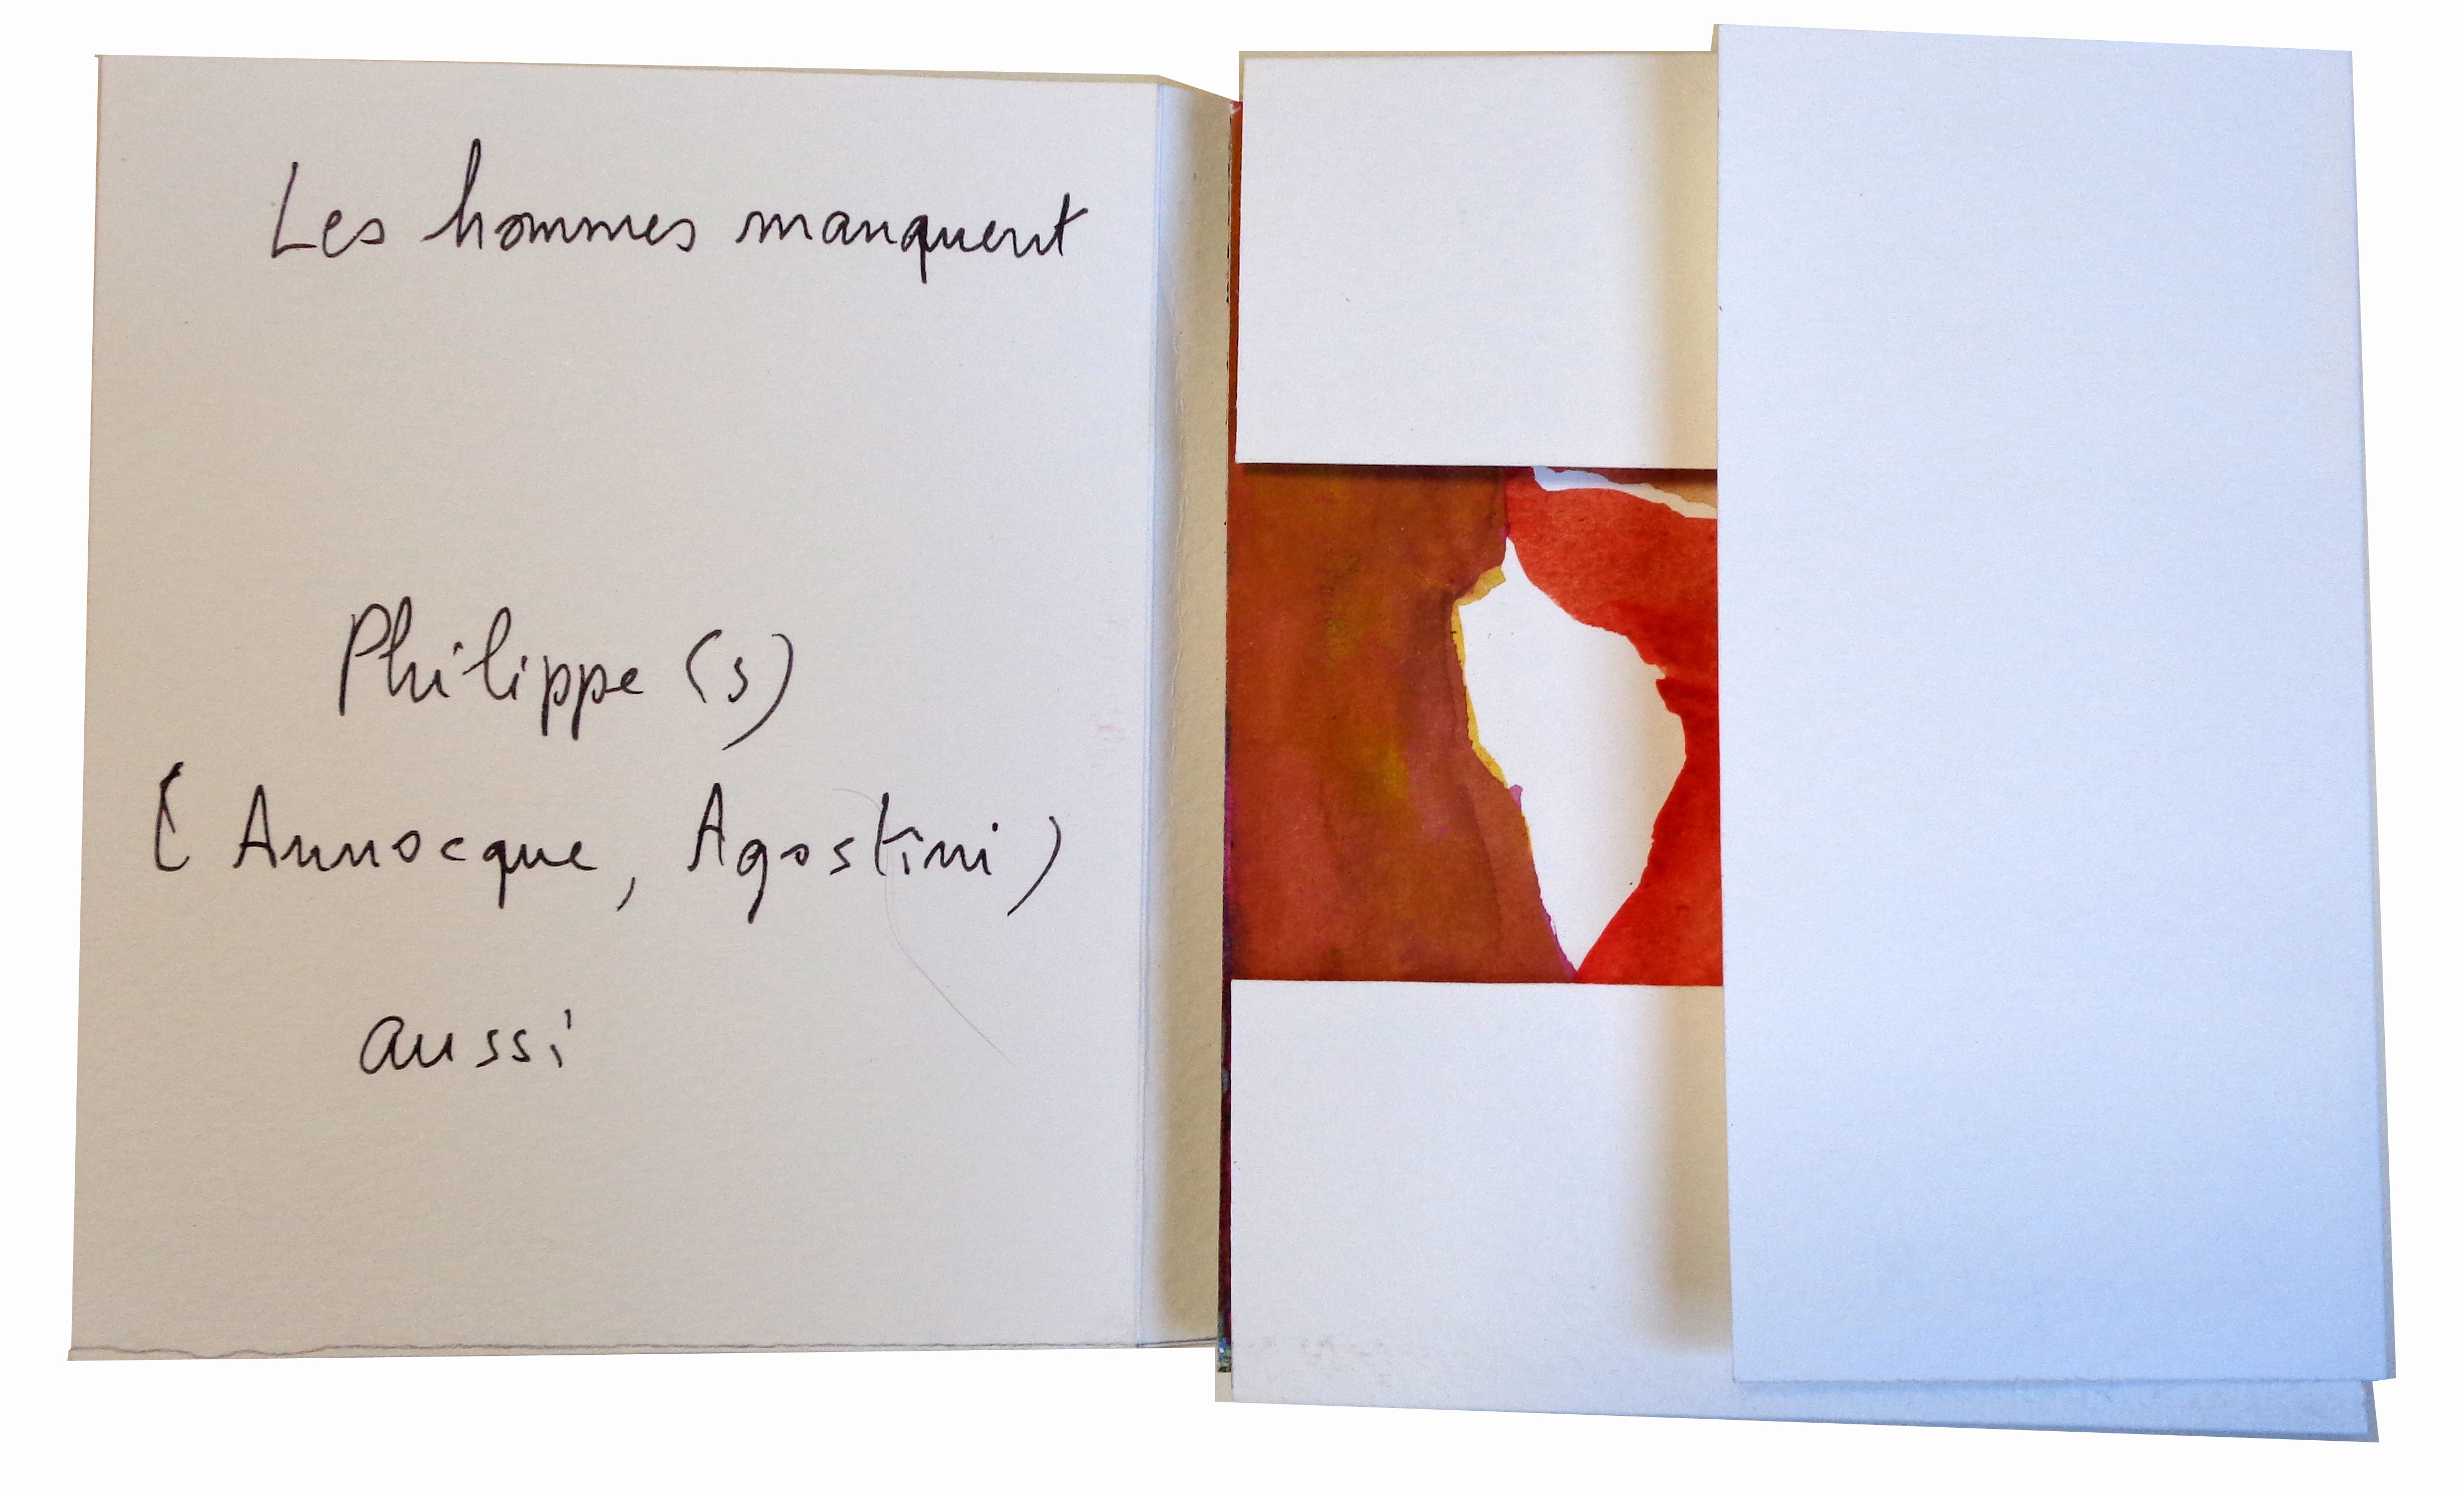 Les hommes manquent
Philippe (s)
( Annocque, Agostini )
aussi